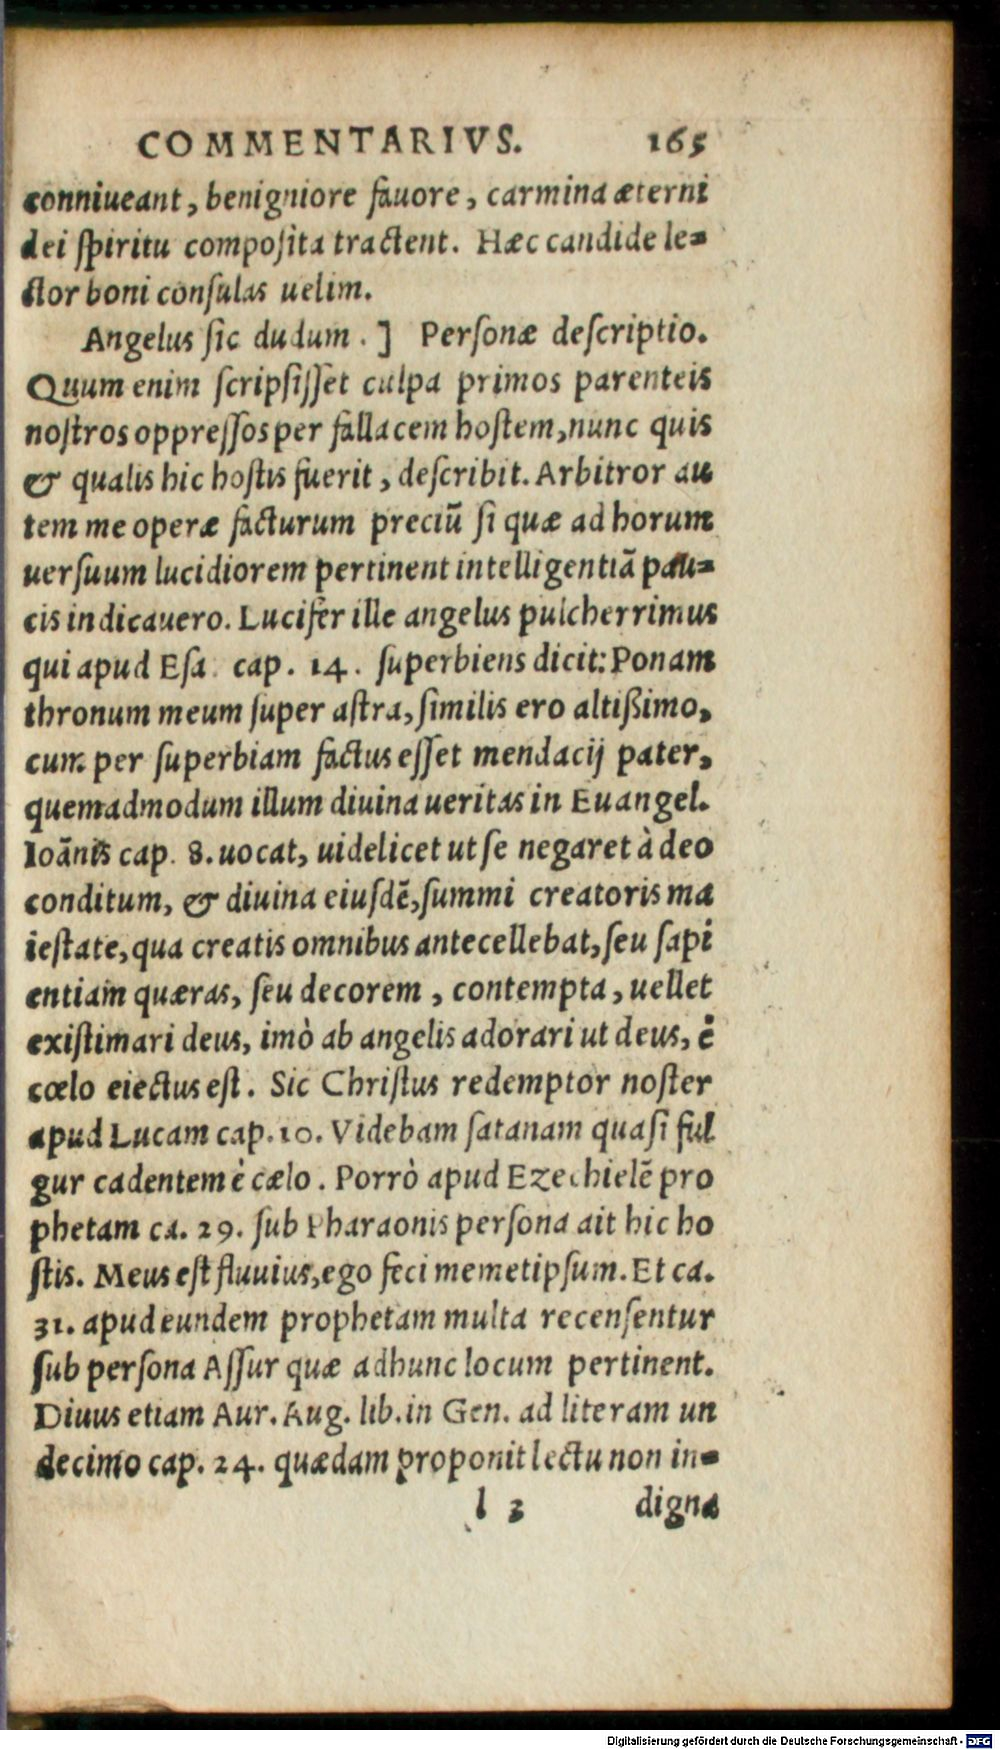 COMMENTARIVS. 165
conniueant, benigniore fauore, carmina æterni
dei ſpiritu compoſita tractent. Hæc candide le=
ctor boni conſulas uelim.
Angelus ſic dudum. ] Perſonæ deſcriptio.
Quum enim ſcripſiſſet culpa primos parenteis
noſtros oppreſſos per fallacem hoſtem, nunc quis
& qualis hic hoſtis fuerit, deſcribit. Arbitror au
tem me operæ facturum preciũ ſi quæ ad horum
uerſuum lucidiorem pertinent intelligentiã pau=
cis indicauero. Lucifer ille angelus pulcherrimus
qui apud Eſa. cap. 14. ſuperbiens dicit: Ponam
thronum meum ſuper aſtra, ſimilis ero altißimo,
cum per ſuperbiam factus eſſet mendacij pater,
quemadmodum illum diuina ueritas in Euangel.
Ioãnis cap. 8. uocat, uidelicet ut ſe negaret à deo
conditum, & diuina eiuſdẽ, ſummi creatoris ma
ieſtate, qua creatis omnibus antecellebat, ſeu ſapi
entiam quæras, ſeu decorem, contempta, uellet
exiſtimari deus, imò ab angelis adorari ut deus, è
cœlo eiectus eſt. Sic Chriſtus redemptor noſter
apud Lucam cap. 10. Videbam ſatanam quaſi ful
gur cadentem è cælo. Porrò apud Ezechielẽ pro
phetam ca. 29. ſub Pharaonis perſona ait hic ho
ſtis. Meus eſt fluuius, ego feci memetipſum. Et ca.
31. apud eundem prophetam multa recenſentur
ſub perſona Aſſur quæ ad hunc locum pertinent.
Diuus etiam Aur. Aug. lib. in Gen. ad literam un
decimo cap. 24. quædam proponit lectu non in=
l 3 digna
Digitalisierung gefördert durch die Deutsche Forschungsgemeinschaft - DFG